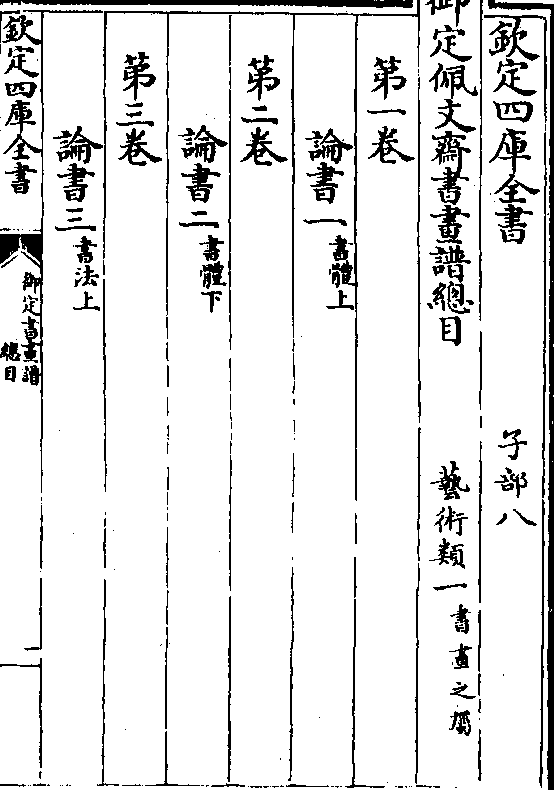 欽定四庫全書 子部八
御定佩文齋書畫譜總目 藝術類一書畫之屬
第一卷
論書一書體上
第二卷
論書二書體下
第三卷
論書三書法上
欽定四庫全書
御定書畫譜
總目
一